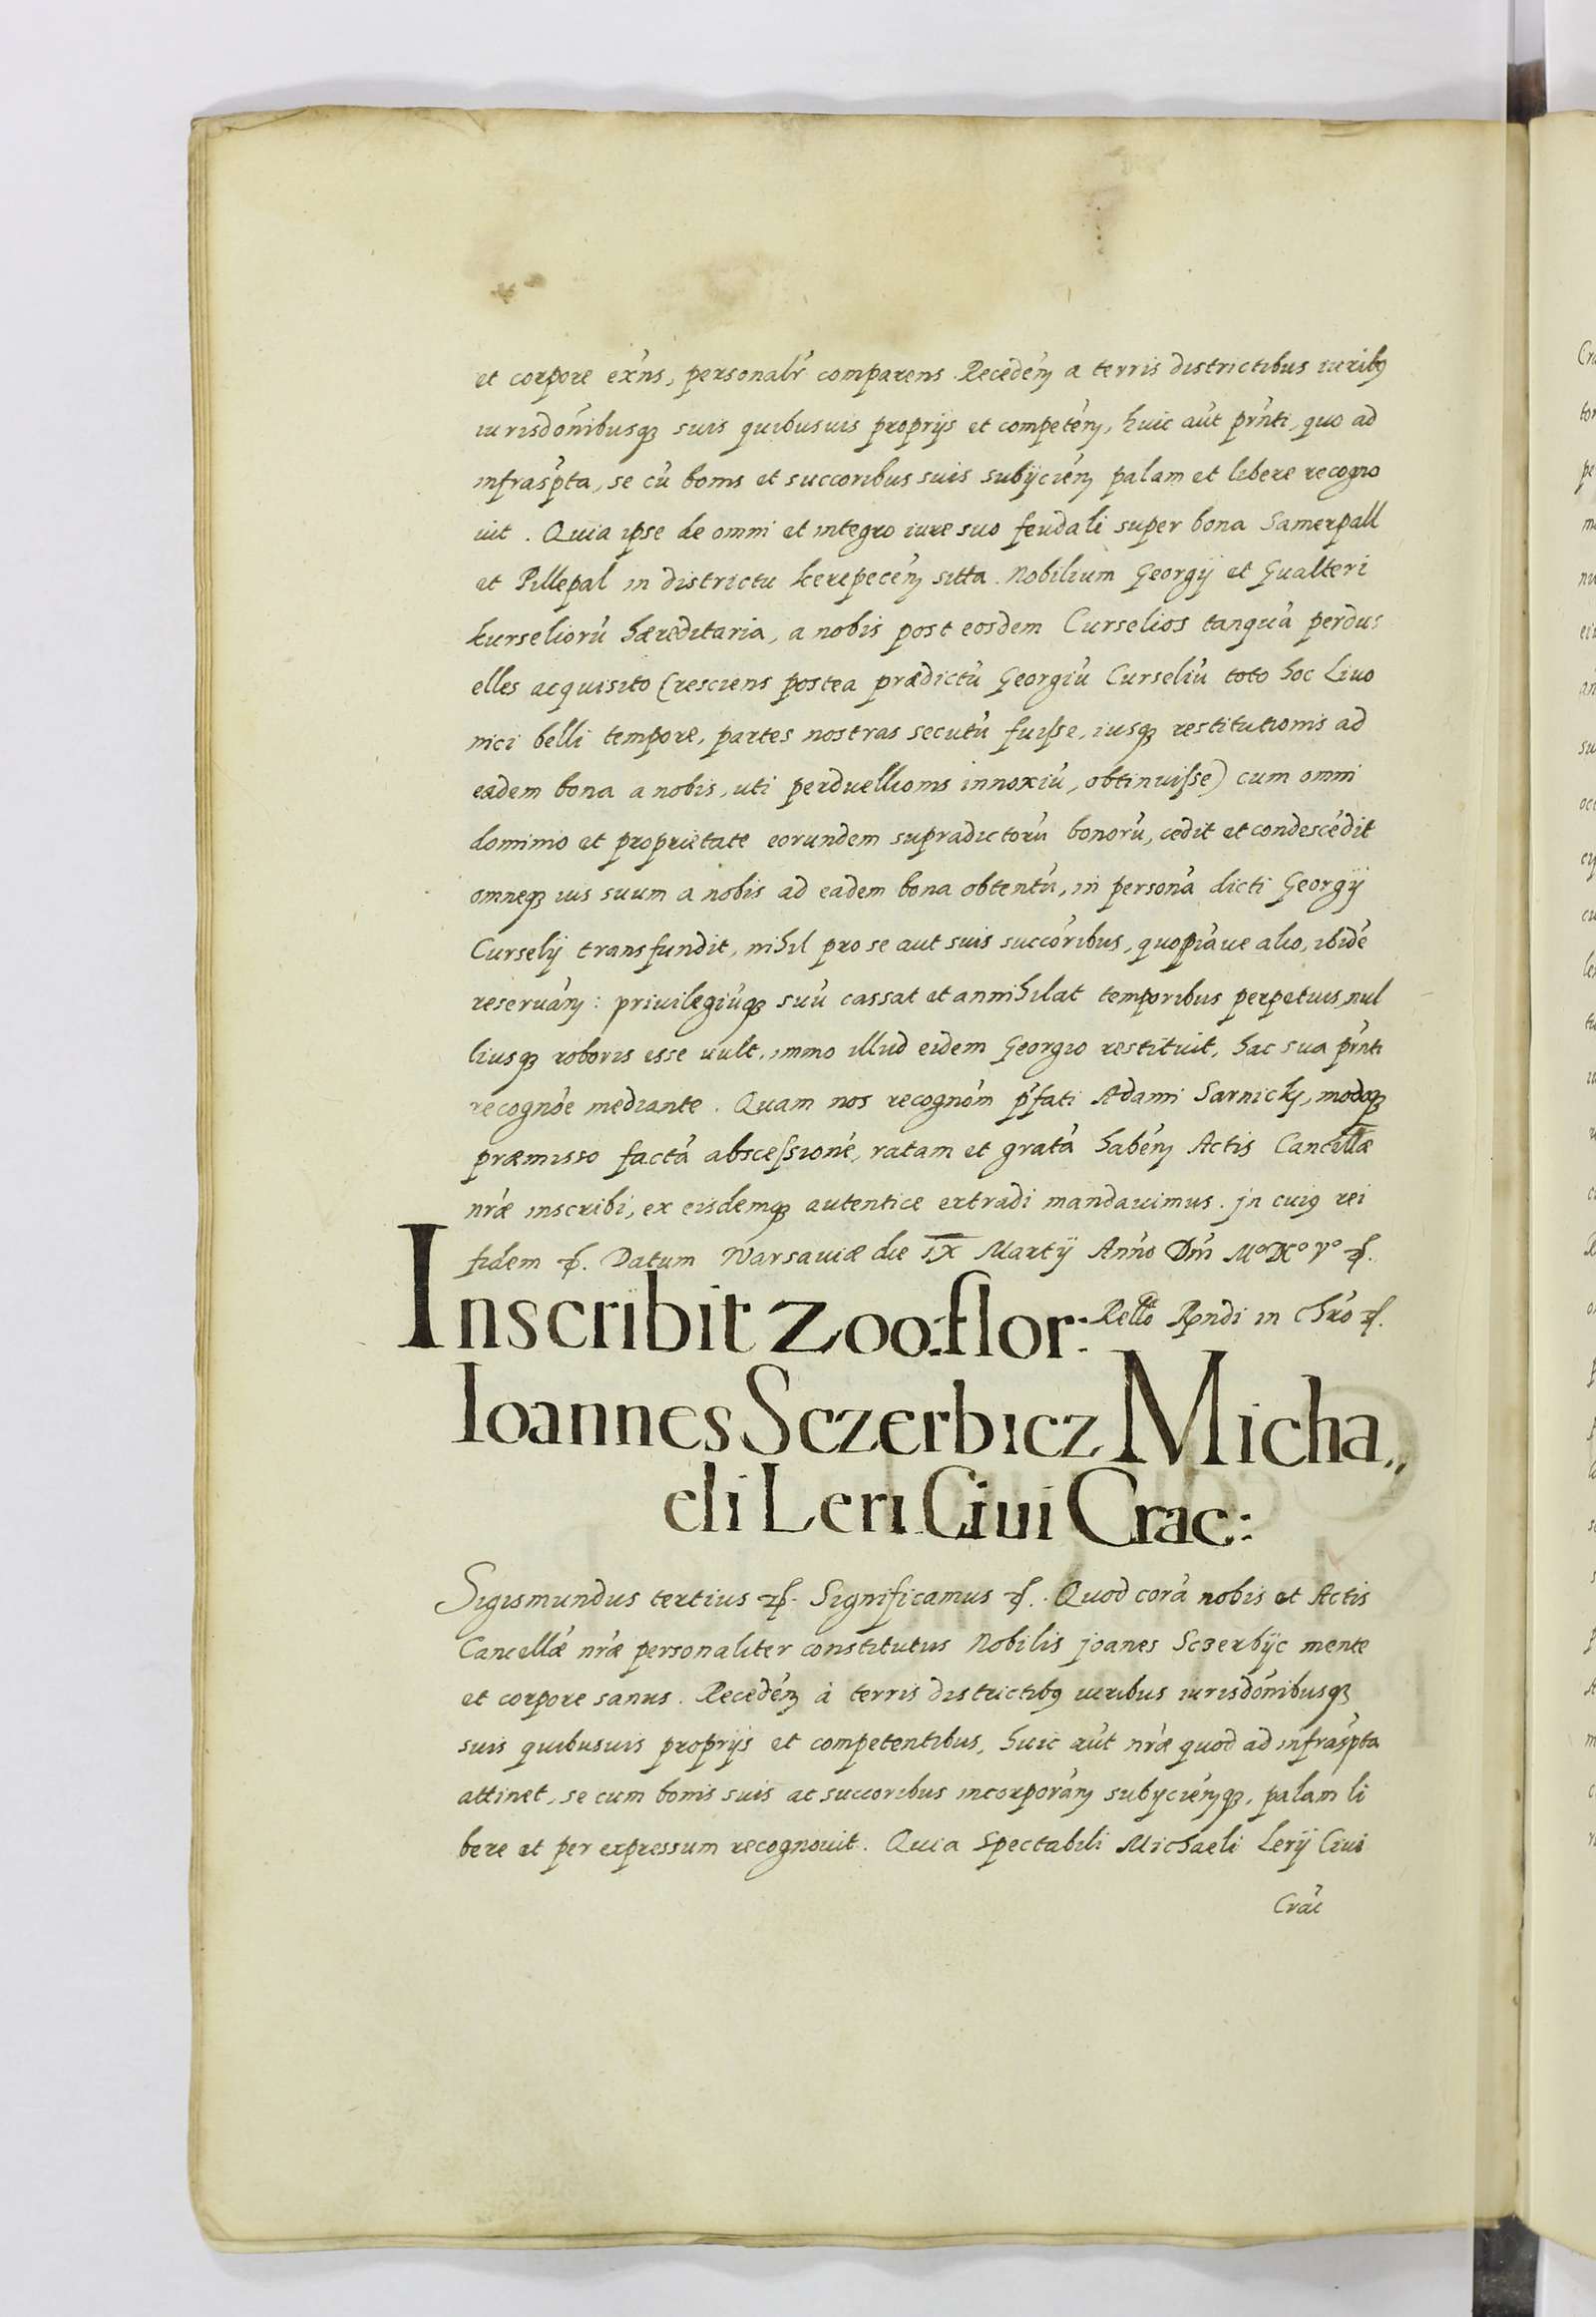 et corpore exñs, personalr̃ comparens. Recedeñ a terris districtibus iuribꝫ
iurisdõnibusqꝫ suis quibusuis proprijs et competeñ, huic aũt pr̃nti, quo ad
infrasp̃ta, se cũ bonis et succoribus suis subijcieñ palam et libere recogno
uit. Quia ipse de omni et integro iure suo feudali super bona Samerpall
et Pillepal in districtu kerepeceñ sitta. Nobilium Georgij et Gualteri
kurseliorũ hæreditaria, a nobis post eosdem Curselios tanquã perdu
elles acquisito (resciens postea prædictũ Georgiũ Curseliũ toto hoc Livo
nici belli tempore, partes nostras secutũ fuiſse, iusqꝫ restitutionis ad
eadem bona a nobis, uti perduellionis innoxiũ, obtinuiſse) cum omni
dominio et proprietate eorundem supradictorũ bonorũ, cedit et condescẽdit
omneqꝫ ius suum a nobis ad eadem bona obtentũ, in personã dicti Georgij
Curselij transfundit, nihil pro se aut suis succõribus, quopiãue alio, ibidẽ
reservañ: privilegiũqꝫ suũ cassat et annihilat temporibus perpetuis, nul
liusqꝫ roboris esse uult, immo illud eidem Georgio restituit, hac sua pr̃nti
recognõe mediante. Quam nos recognõm p̃fati Adami Sarnicky, modoqꝫ
præmisso factã absceſsionẽ, ratam et gratã habeñ Actis Cancellæ
nr̃æ inscribi, ex eisdemqꝫ autentice extradi mandauimus. jn cuiꝫ rei
fidem ꝛc. Datum Warsaviæ die IX Martij Anño Dñi Mº DXCº Vº ꝛc.
Rello Rndi in Chrõ ꝛc.
Inscribit Zoo:flor:
Ioannes Sczerbicz Micha„
eli Leri Ciui Crac:
Sigismundus tertius ꝛc. Significamus ꝛc. Quod corã nobis et Actis
Cancellæ nr̃æ personaliter constitutus Nobilis joanes Sczerbijc mente
et corpore sanus. Recedeñ à terris districtibꝫ iuribus iurisdõnibusqꝫ
suis quibusuis proprijs et competentibus, huic aũt nr̃æ quod ad infrasp̃ta
attinet, se cum bonis suis ac succoribus incorporañ subijcieñqꝫ, palam li
bere et per expressum recognouit. Quia Spectabili Michaeli Lerij Ciui
Crac̃